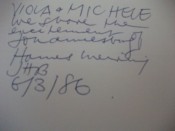 VIOLA & MICHELE
We share the
excitement
Johannesburg
JHB
6/3/86